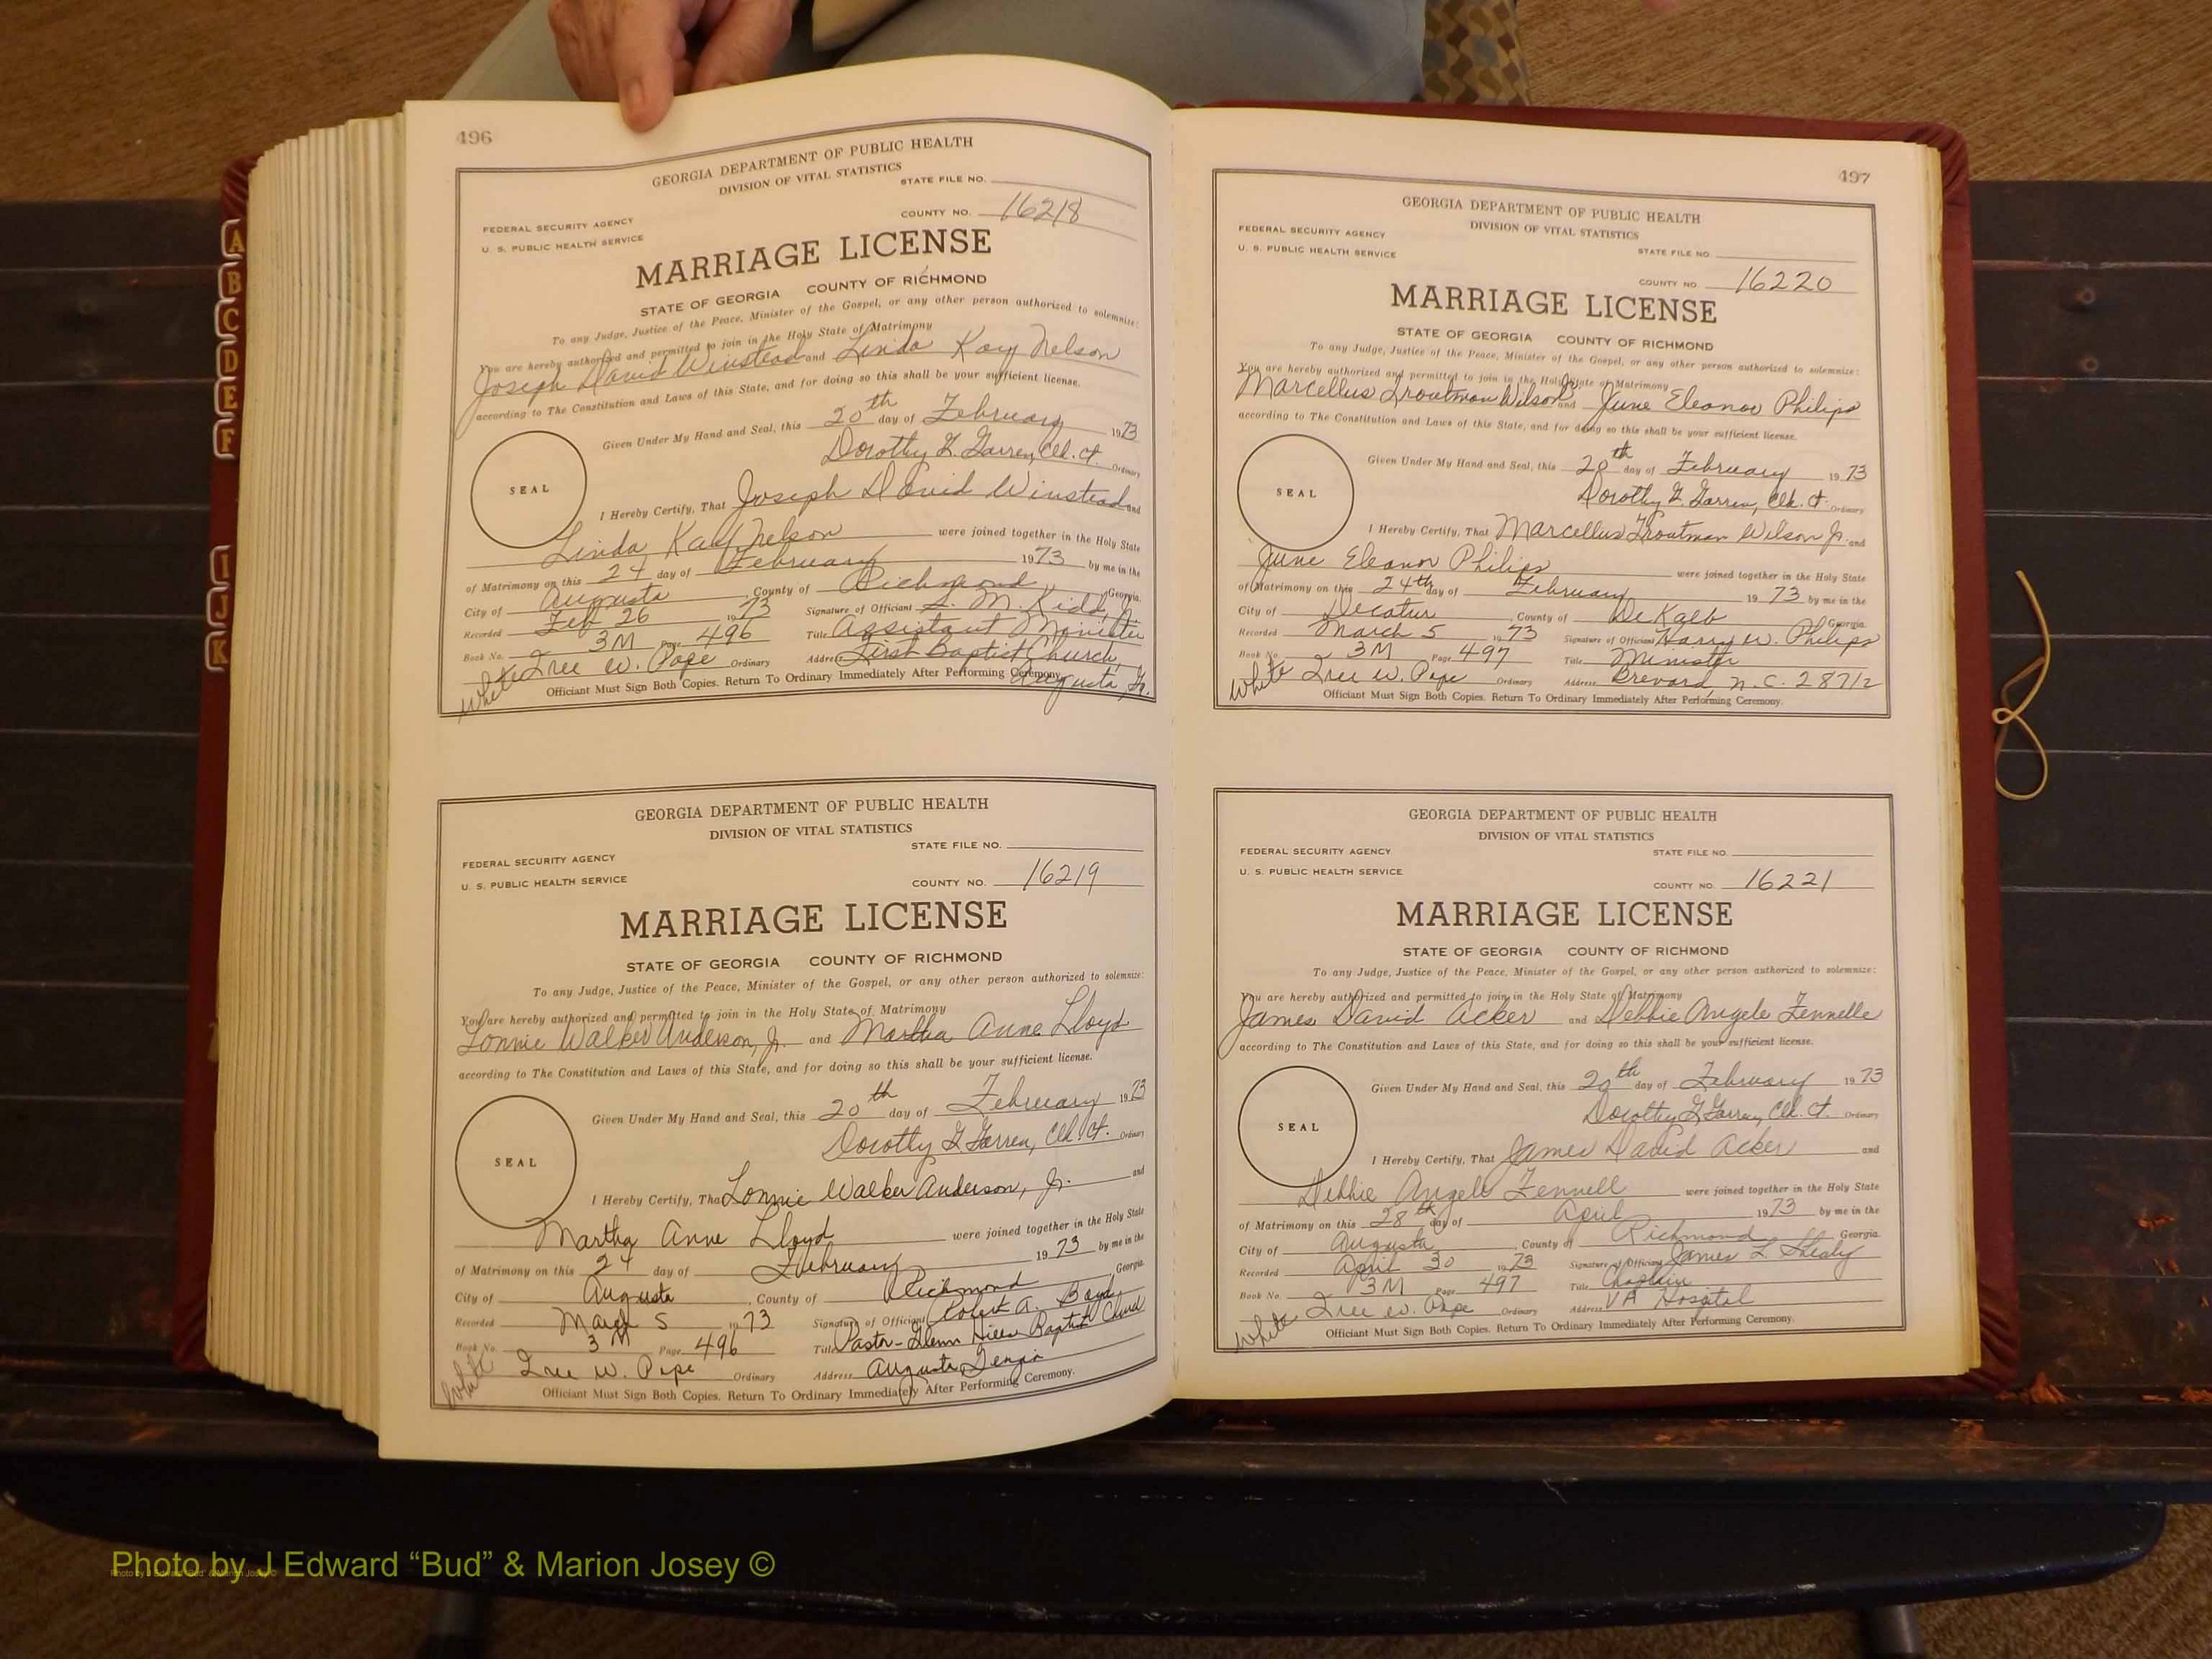 496
GEORGIA DEPARTMENT OF PUBLIC HEALTH
DIVISION OF VITAL STATISTICS
STATE FILE NO.
FEDERAL SECURITY AGENCY
COUNTY NO. 16218
U. S. PUBLIC HEALTH SERVICE
MARRIAGE LICENSE
STATE OF GEORGIA COUNTY OF RICHMOND
To any Judge, Justice of the Peace, Minister of the Gospel, or any other person authorized to solemnize:
You are hereby authorized and permitted to join in the Holy State of Matrimony
Joseph David Winstead and Linda Kay Nelson
according to The Constitution and Laws of this State, and for doing so this shall be your sufficient license.
Given Under My Hand and Seal, this 20th day of February 1973
Dorothy G. Garren, Clk. Ct. Ordinary
SEAL
I Hereby Certify, That Joseph David Winstead and
Linda Kay Nelson were joined together in the Holy State
of Matrimony on this 24 day of February 1973 by me in the
City of Augusta, County of Richmond Georgia.
Recorded Feb 26 1973 Signature of Officiant L. M. Kidd, Jr.
Book No. 3M Page 496 Title Assistant Minister
White Iree W. Pope Ordinary Address First Baptist Church,
Augusta, Ga.
Officiant Must Sign Both Copies. Return To Ordinary Immediately After Performing Ceremony.
GEORGIA DEPARTMENT OF PUBLIC HEALTH
DIVISION OF VITAL STATISTICS
STATE FILE NO.
FEDERAL SECURITY AGENCY
U. S. PUBLIC HEALTH SERVICE
COUNTY NO. 16219
MARRIAGE LICENSE
STATE OF GEORGIA COUNTY OF RICHMOND
To any Judge, Justice of the Peace, Minister of the Gospel, or any other person authorized to solemnize:
You are hereby authorized and permitted to join in the Holy State of Matrimony
Lonnie Walker Anderson, Jr. and Martha Anne Lloyd
according to The Constitution and Laws of this State, and for doing so this shall be your sufficient license.
Given Under My Hand and Seal, this 20th day of February 1973
Dorothy G. Garren, Clk. Ct. Ordinary
SEAL
I Hereby Certify, That Lonnie Walker Anderson, Jr. and
Martha Anne Lloyd were joined together in the Holy State
of Matrimony on this 24 day of February 1973 by me in the
City of Augusta, County of Richmond Georgia.
Recorded March 5 1973 Signature of Officiant Robert A. Boyd
Book No. 3M Page 496 Title Pastor-Glenn Hills Baptist Church
White Iree W. Pope Ordinary Address Augusta, Georgia
Officiant Must Sign Both Copies. Return To Ordinary Immediately After Performing Ceremony.
497
GEORGIA DEPARTMENT OF PUBLIC HEALTH
DIVISION OF VITAL STATISTICS
FEDERAL SECURITY AGENCY
U. S. PUBLIC HEALTH SERVICE
STATE FILE NO.
COUNTY NO. 16220
MARRIAGE LICENSE
STATE OF GEORGIA COUNTY OF RICHMOND
To any Judge, Justice of the Peace, Minister of the Gospel, or any other person authorized to solemnize:
You are hereby authorized and permitted to join in the Holy State of Matrimony
Marcellus Troutman Wilson and June Eleanor Philips
according to The Constitution and Laws of this State, and for doing so this shall be your sufficient license.
Given Under My Hand and Seal, this 20th day of February 1973
Dorothy G. Garren, Clk. Ct. Ordinary
SEAL
I Hereby Certify, That Marcellus Troutman Wilson Jr. and
June Eleanor Philips were joined together in the Holy State
of Matrimony on this 24th day of February 1973 by me in the
City of Decatur, County of DeKalb Georgia.
Recorded March 5 1973 Signature of Officiant Harry W. Philips
Book No. 3M Page 497 Title Minister
White Iree W. Pope Ordinary Address Brevard, N.C. 28712
Officiant Must Sign Both Copies. Return To Ordinary Immediately After Performing Ceremony.
GEORGIA DEPARTMENT OF PUBLIC HEALTH
DIVISION OF VITAL STATISTICS
FEDERAL SECURITY AGENCY
STATE FILE NO.
U. S. PUBLIC HEALTH SERVICE
COUNTY NO. 16221
MARRIAGE LICENSE
STATE OF GEORGIA COUNTY OF RICHMOND
To any Judge, Justice of the Peace, Minister of the Gospel, or any other person authorized to solemnize:
You are hereby authorized and permitted to join in the Holy State of Matrimony
James David Acker and Debbie Angele Fennelle
according to The Constitution and Laws of this State, and for doing so this shall be your sufficient license.
Given Under My Hand and Seal, this 20th day of February 1973
Dorothy G. Garren, Clk. Ct. Ordinary
SEAL
I Hereby Certify, That James David Acker and
Debbie Angele Fennell were joined together in the Holy State
of Matrimony on this 28th day of April 1973 by me in the
City of Augusta, County of Richmond Georgia
Recorded April 30 1973 Signature of Officiant James L. Shealy
Book No. 3M Page 497 Title Chaplain
White Iree W. Pope Ordinary Address VA Hospital
Officiant Must Sign Both Copies. Return To Ordinary Immediately After Performing Ceremony.
A
B
C
D
E
F
I
J
K
Photo by J Edward “Bud” & Marion Josey ©
Photo by J Edward "Bud" & Marion Josey ©